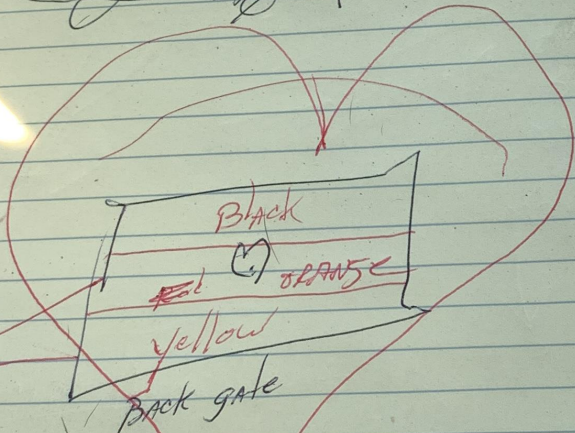 Black
Red ORANGE
Yellow
BACK gate